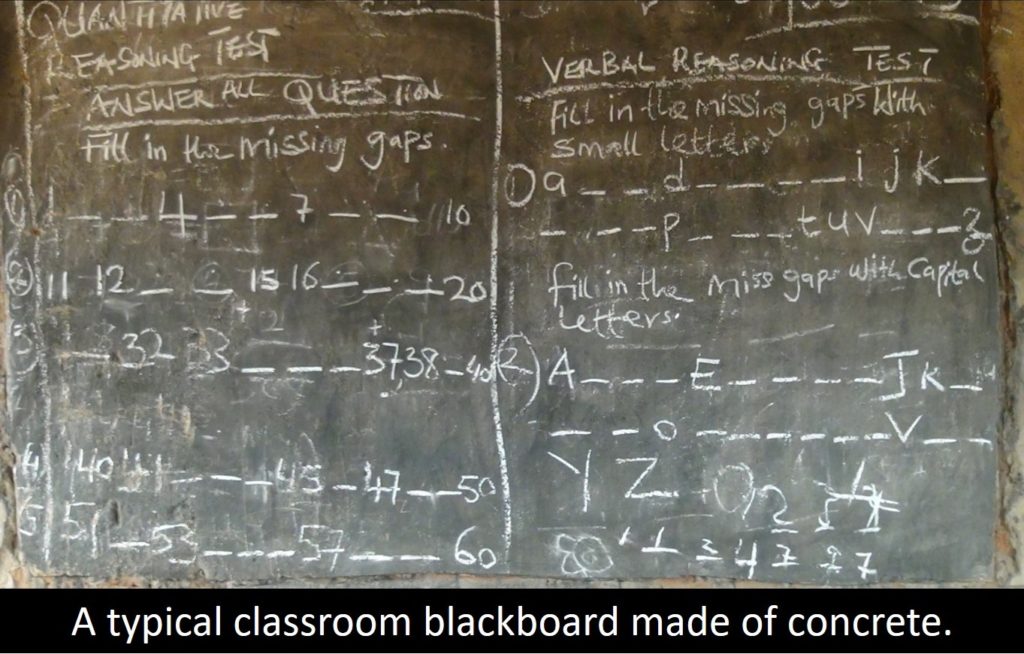 QUANTITATIVE
REASONING TEST
ANSWER ALL QUESTION
Fill in the missing gaps.
① 1 _ _ 4 _ _ 7 _ _ 10
② 11 12 _ _ 15 16 _ _ _ 20
3 _ _ 32 _ 33 _ _ _ _ 37,38 _ 40
4 40 41 _ _ _ _ 45 _ 47 _ _ 50
5 51 _ 53 _ _ _ 57 _ _ 60
VERBAL REASONING TEST
Fill in the missing gaps with
small letters
1) a _ _ d _ _ _ _ i j k _
_ _ _ _ p _ _ _ t u v _ _ _ z
fill in the miss gaps with Capital
letters.
2) A _ _ _ E _ _ _ _ J k _
_ _ _ o _ _ _ _ _ _ V _ _ _
Y Z
A typical classroom blackboard made of concrete.